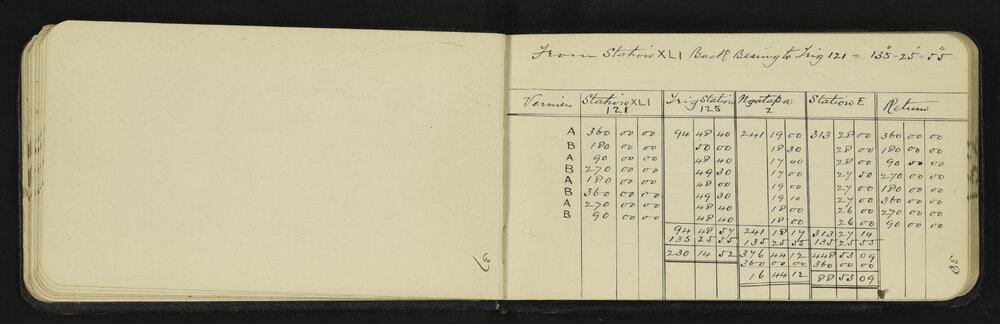 37
From Station XLI Back Bearing to Trig 121 = 135°-25'-55"
Verniers Station XLI 121 Trig Station 125 Ngatapa Z Station E Return
A 360 00 00 94 48 40 241 19 00 313 28 00 360 00 00
B 180 00 00 50 00 18 30 28 00 180 00 00
A 90 00 00 48 40 17 40 28 00 90 00 00
B 270 00 00 49 30 17 00 27 50 270 00 00
A 180 00 00 48 00 19 00 27 00 180 00 00
B 360 00 00 49 30 19 10 27 00 360 00 00
A 270 00 00 48 40 18 00 26 00 270 00 00
B 90 00 00 48 40 18 00 26 00 90 00 00
94 48 57 241 18 17 313 27 14
135 25 55 135 25 55 135 25 55
230 14 52 376 44 12 448 53 09
360 00 00 360 00 00
16 44 12 88 53 09
38